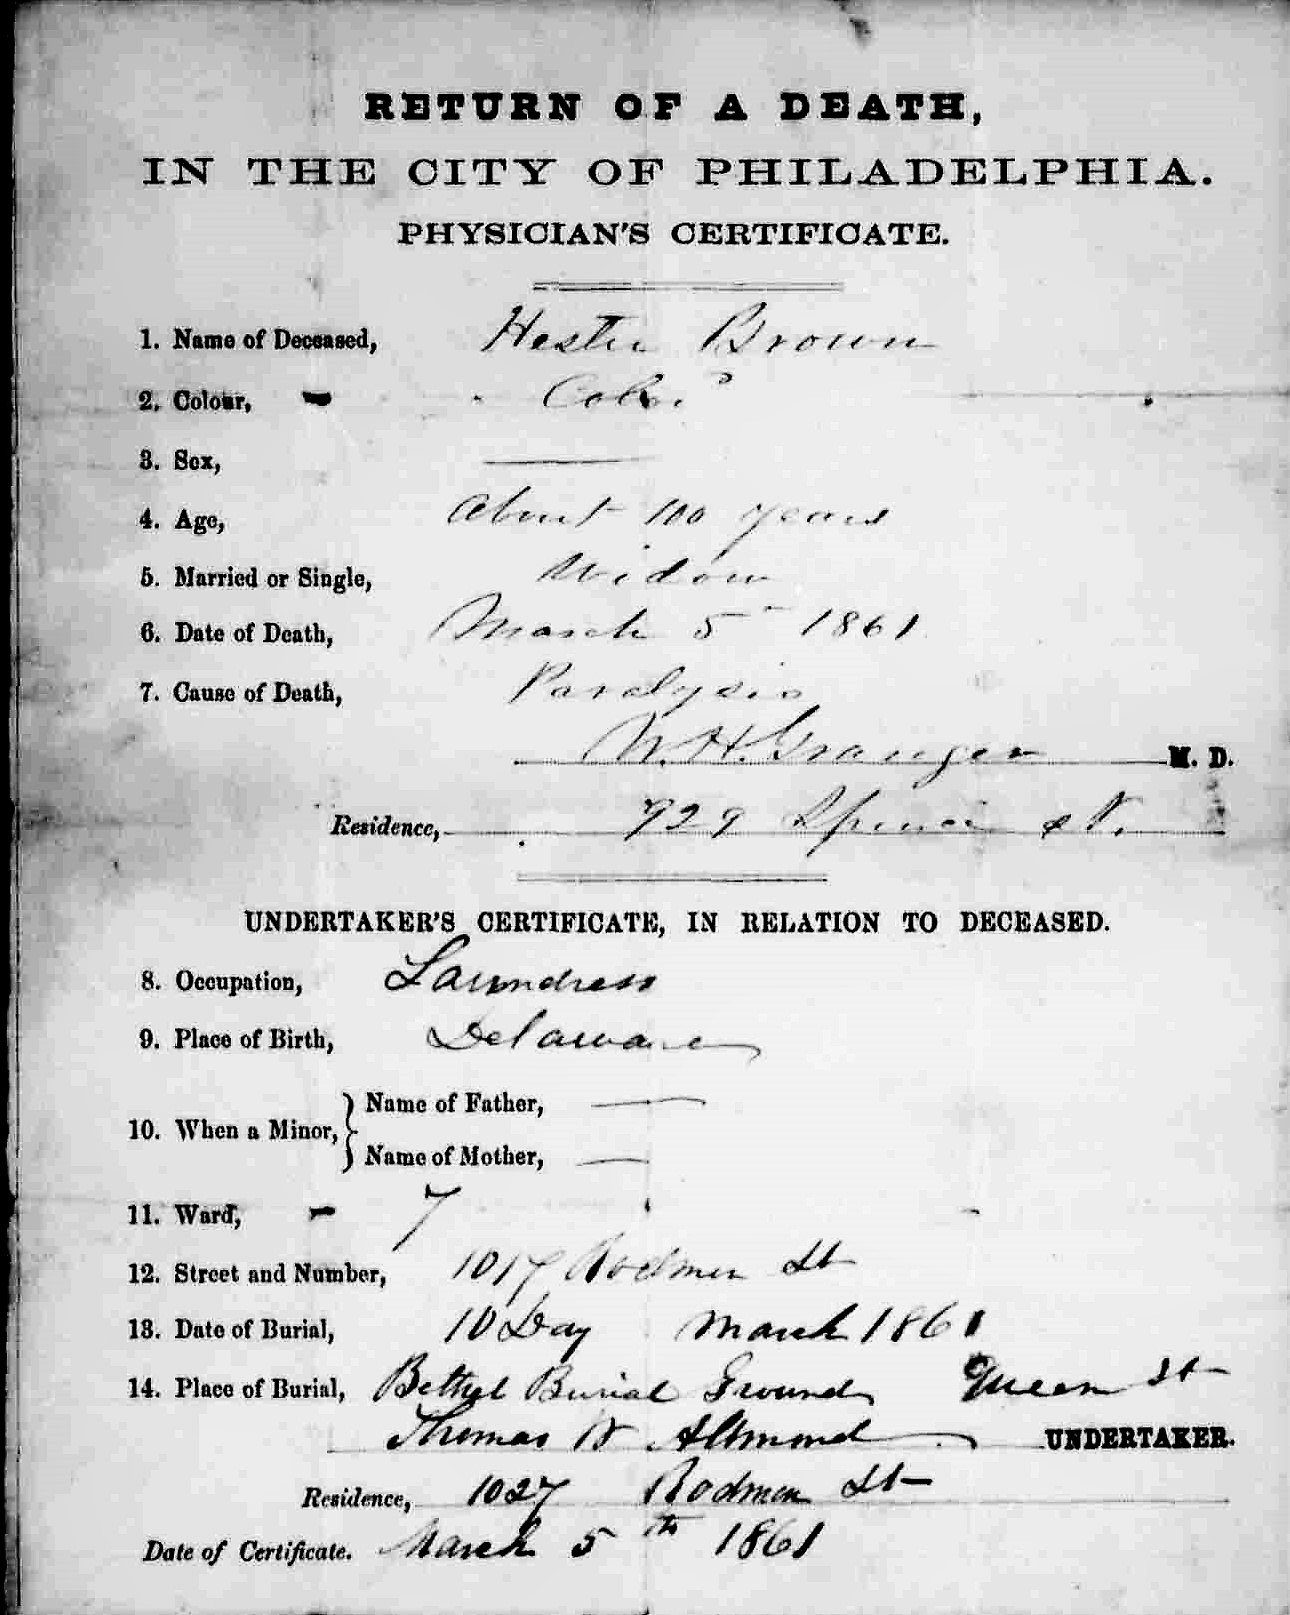 RETURN OF A DEATH,
IN THE CITY OF PHILADELPHIA.
PHYSICIAN'S CERTIFICATE.
1. Name of Deceased, Hester Brown
2. Colour, Col.d
3. Sex,
4. Age, About 100 years
5. Married or Single, Widow
6. Date of Death, March 5 1861
7. Cause of Death, Paralysis
W. H. Granger M. D.
Residence, 929 Spruce St.
UNDERTAKER'S CERTIFICATE, IN RELATION TO DECEASED.
8. Occupation, Laundress
9. Place of Birth, Delaware
10. When a Minor, Name of Father,
Name of Mother,
11. Ward, 7
12. Street and Number, 1017 Rodman St
13. Date of Burial, 10 Day March 1861
14. Place of Burial, Bethel Burial Ground Queen St
Thomas Almond UNDERTAKER.
Residence, 1027 Rodman St
Date of Certificate. March 5th 1861